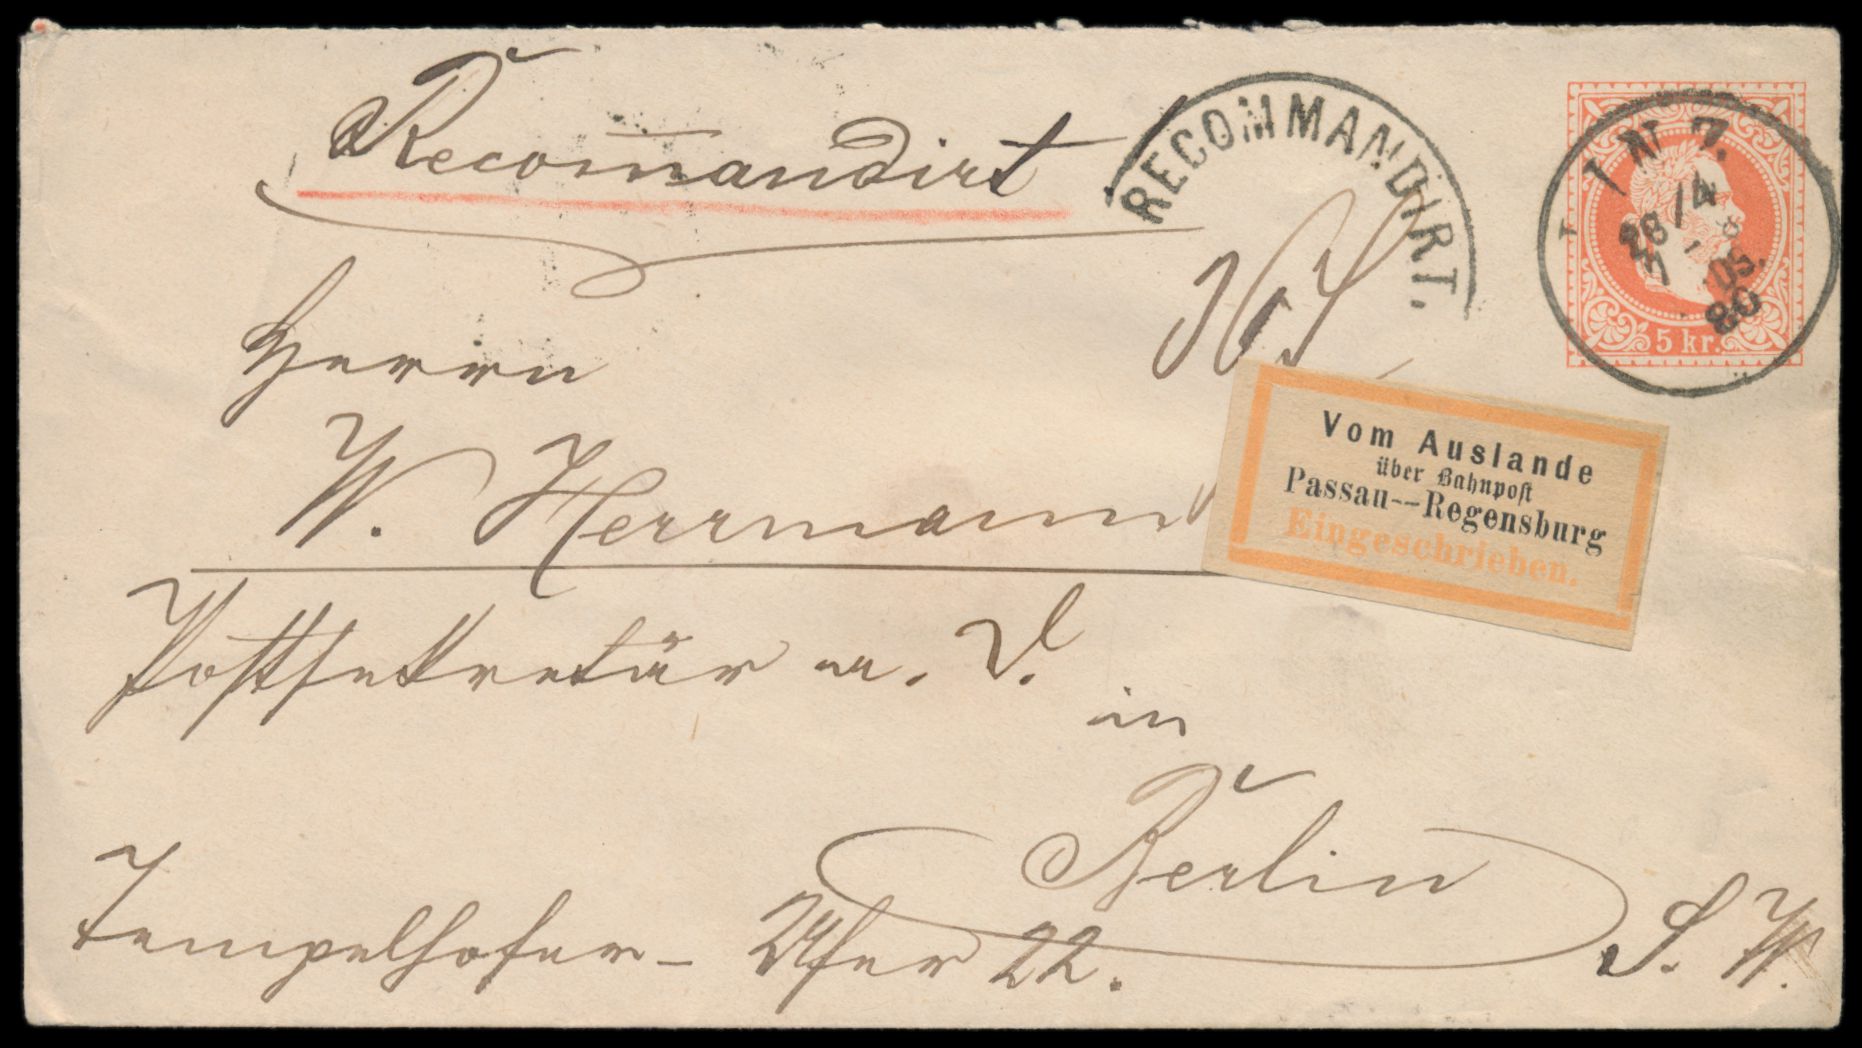 Recom̄andirt
RECOMMANDIRT.
LINZ.
28/4
80
5 kr.
Herrn
W. Herrmann
Vom Auslande
über Bahnpost
Passau--Regensburg
Eingeschrieben.
Postsekretär a. D.
in
Berlin
S. W.
Tempelhofer- Ufer 22.